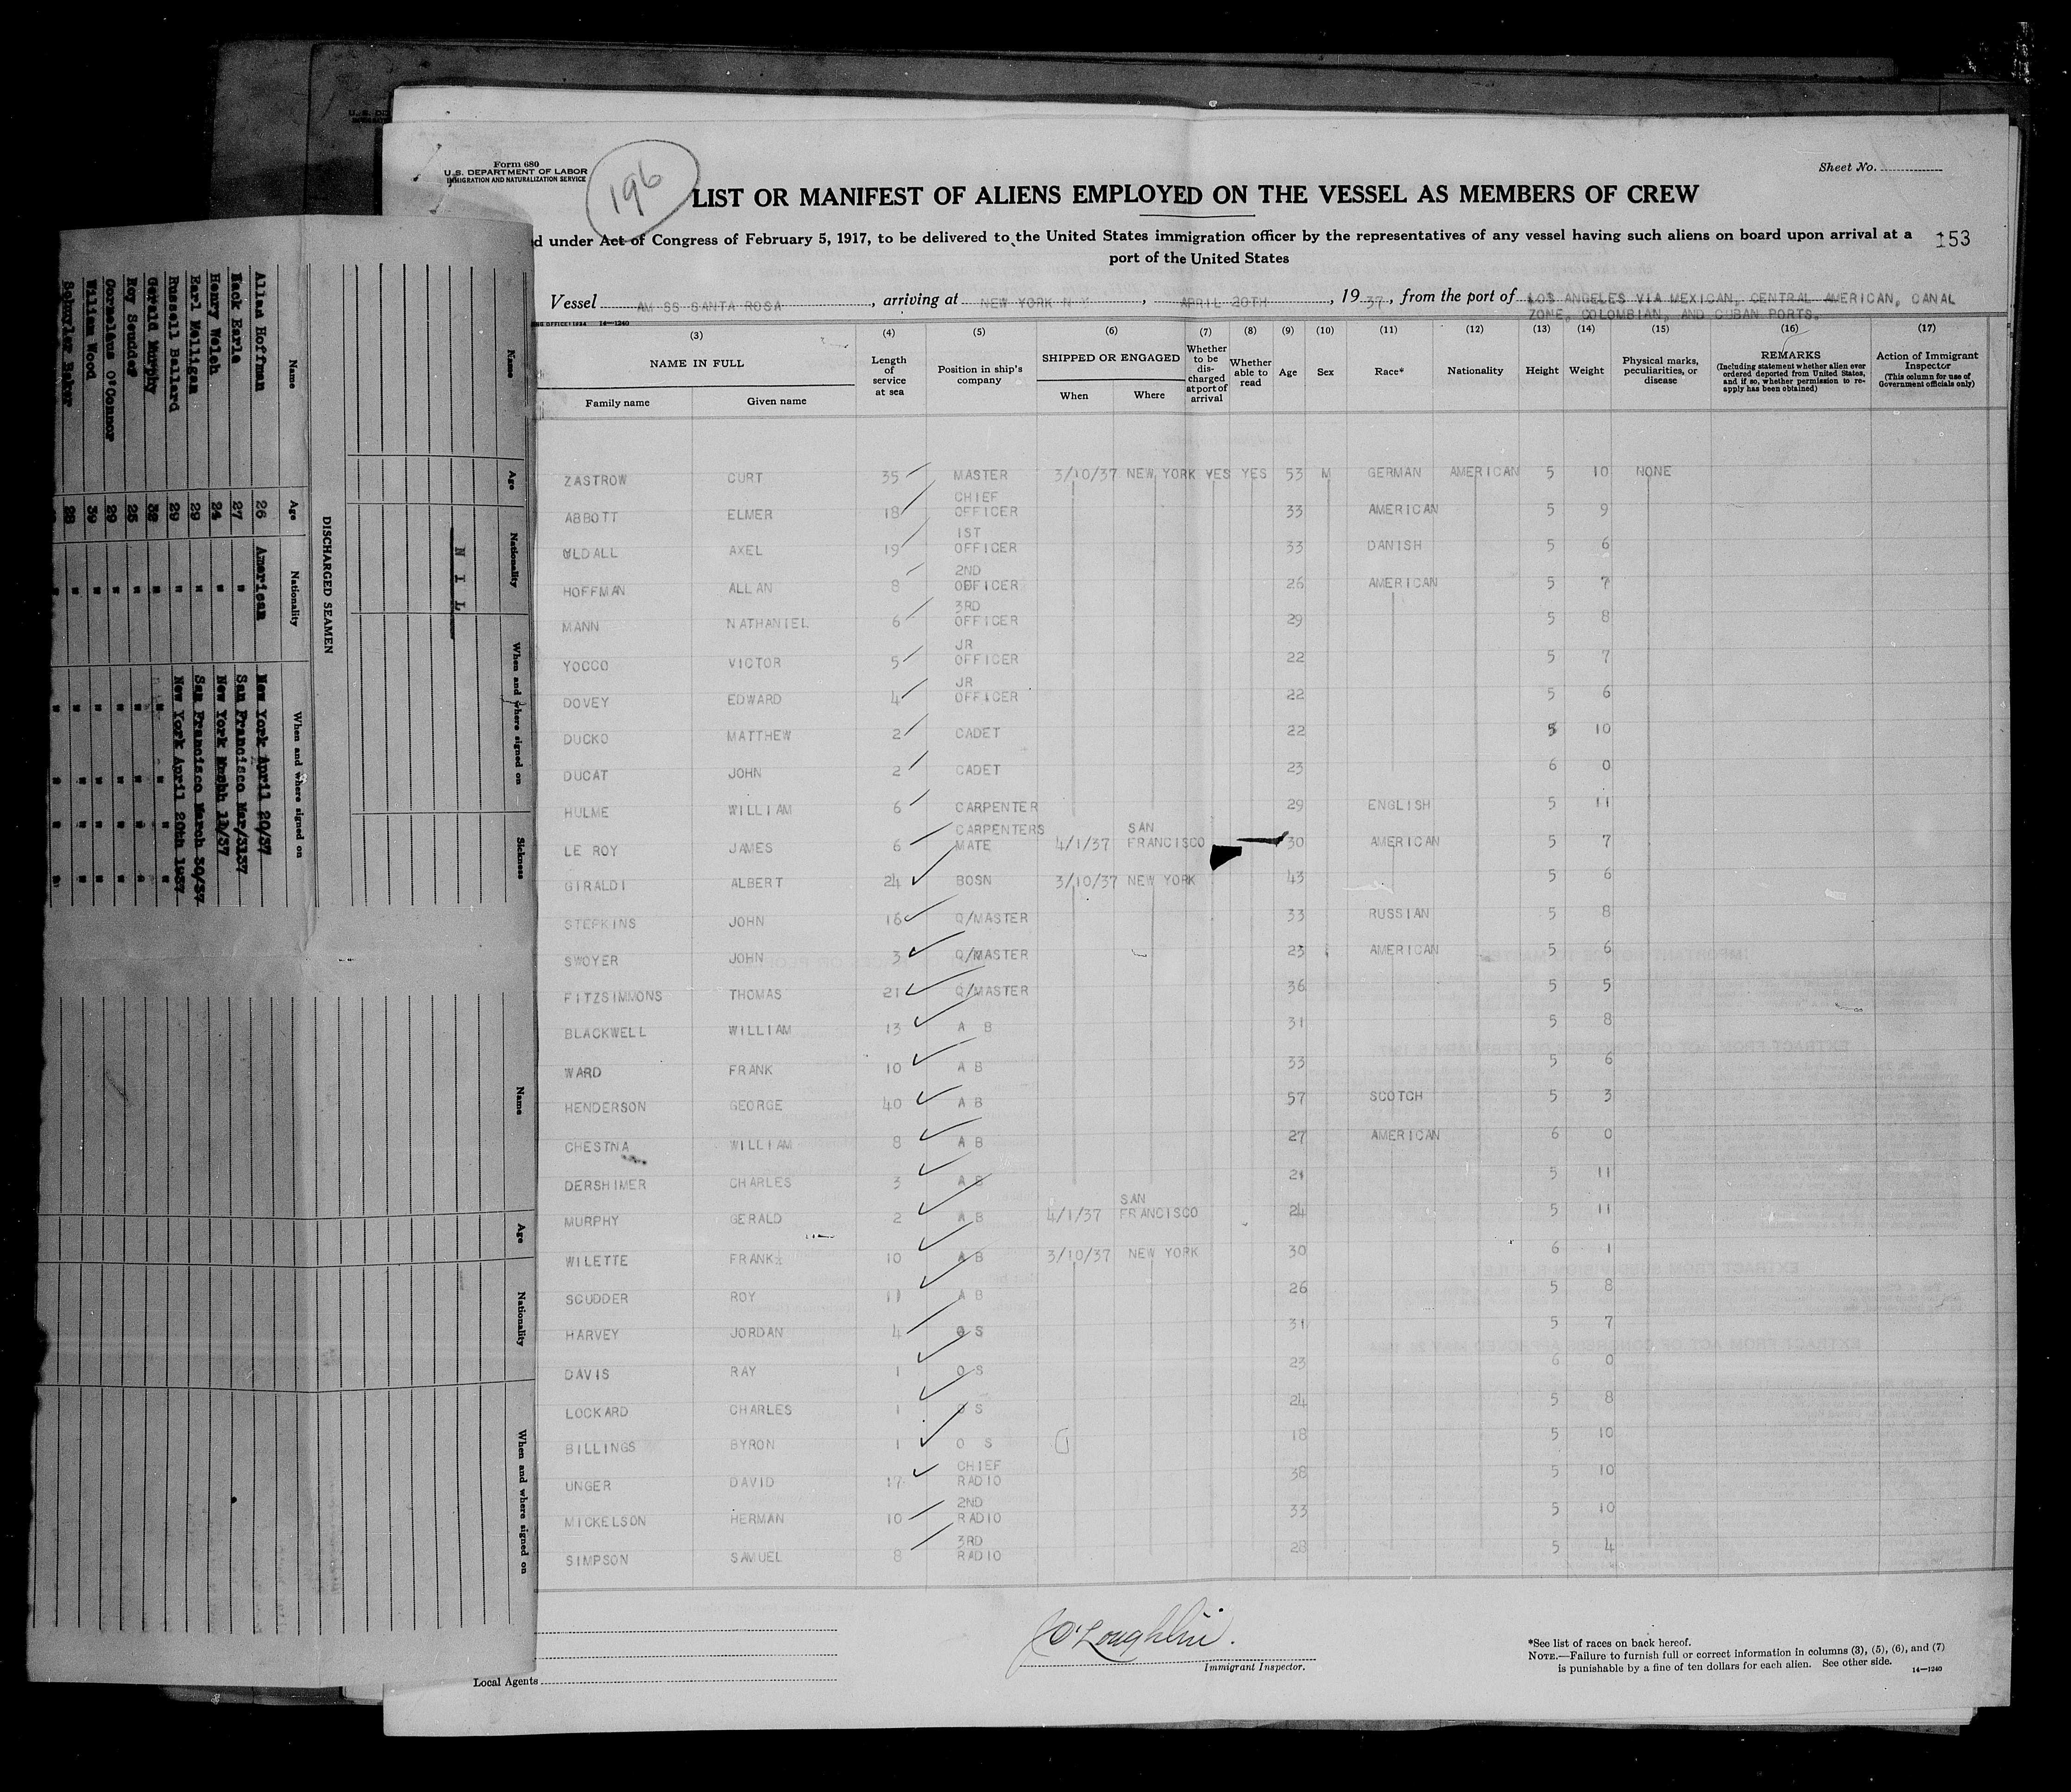 Form 680
U.S. DEPARTMENT OF LABOR
IMMIGRATION AND NATURALIZATION SERVICE
196
Sheet No.
LIST OR MANIFEST OF ALIENS EMPLOYED ON THE VESSEL AS MEMBERS OF CREW
d under Act of Congress of February 5, 1917, to be delivered to the United States immigration officer by the representatives of any vessel having such aliens on board upon arrival at a
port of the United States
153
Vessel AM SS SANTA ROSA, arriving at NEW YORK N Y, APRIL 20TH, 1937, from the port of LOS ANGELES VIA MEXICAN, CENTRAL AMERICAN, CANAL
ZONE, COLOMBIAN, AND CUBAN PORTS.
(3) (4) (5) (6) (7) (8) (9) (10) (11) (12) (13) (14) (15) (16) (17)
NAME IN FULL
Family name Given name
Length of service at sea
Position in ship's company
SHIPPED OR ENGAGED
When Where
Whether to be discharged at port of arrival
Whether able to read
Age Sex Race* Nationality Height Weight
Physical marks, peculiarities, or disease
REMARKS
(Including statement whether alien ever ordered deported from United States, and if so, whether permission to re-apply has been obtained)
Action of Immigrant Inspector
(This column for use of Government officials only)
ZASTROW CURT 35 MASTER 3/10/37 NEW YORK YES YES 53 M GERMAN AMERICAN 5 10 NONE
ABBOTT ELMER 18 CHIEF OFFICER 33 AMERICAN 5 9
ULDALL AXEL 19 1ST OFFICER 33 DANISH 5 6
HOFFMAN ALLAN 8 2ND OFFICER 26 AMERICAN 5 7
MANN NATHANIEL 6 3RD OFFICER 29 5 8
YOCCO VICTOR 5 JR OFFICER 22 5 7
DOVEY EDWARD 4 JR OFFICER 22 5 6
DUCKO MATTHEW 2 CADET 22 5 10
DUCAT JOHN 2 CADET 23 6 0
HULME WILLIAM 6 CARPENTER 29 ENGLISH 5 11
LE ROY JAMES 6 CARPENTERS MATE 4/1/37 SAN FRANCISCO 30 AMERICAN 5 7
GIRALDI ALBERT 24 BOSN 3/10/37 NEW YORK 43 5 6
STEPKINS JOHN 16 Q/MASTER 33 RUSSIAN 5 8
SWOYER JOHN 3 Q/MASTER 23 AMERICAN 5 6
FITZSIMMONS THOMAS 21 Q/MASTER 36 5 5
BLACKWELL WILLIAM 13 A B 31 5 8
WARD FRANK 10 A B 33 5 6
HENDERSON GEORGE 40 A B 57 SCOTCH 5 3
CHESTNA WILLIAM 8 A B 27 AMERICAN 6 0
DERSHIMER CHARLES 3 A B 21 5 11
MURPHY GERALD 2 A B 4/1/37 SAN FRANCISCO 24 5 11
WILETTE FRANK 10 A B 3/10/37 NEW YORK 30 6 1
SCUDDER ROY 11 A B 26 5 8
HARVEY JORDAN 4 O S 31 5 7
DAVIS RAY 1 O S 23 6 0
LOCKARD CHARLES 1 O S 24 5 8
BILLINGS BYRON 1 O S 18 5 10
UNGER DAVID 17 CHIEF RADIO 38 5 10
MICKELSON HERMAN 10 2ND RADIO 33 5 10
SIMPSON SAMUEL 8 3RD RADIO 28 5 4
O'Loughlin.
Immigrant Inspector.
Local Agents
*See list of races on back hereof.
NOTE.—Failure to furnish full or correct information in columns (3), (5), (6), and (7)
is punishable by a fine of ten dollars for each alien. See other side.
14—1240
Name Age Nationality When and where signed on Sickness
N I L
DISCHARGED SEAMEN
Name Age Nationality When and where signed on
Allan Hoffman 26 American New York April 20/37
Mack Earle 27 " San Francisco Mar/3137
Henry Welch 24 " New York
Earl Melligan 29 " San Francisco March 30/37
Russell Ballard 29 " New York April 20th 1937
Gerald Murphy 32 " " "
Roy Scudder 25 " " " "
Cornelius O'Connor 29 " " " "
William Wood 39 " " " "
Schuyler Baker 28 " " " "
Name Age Nationality When and where signed on